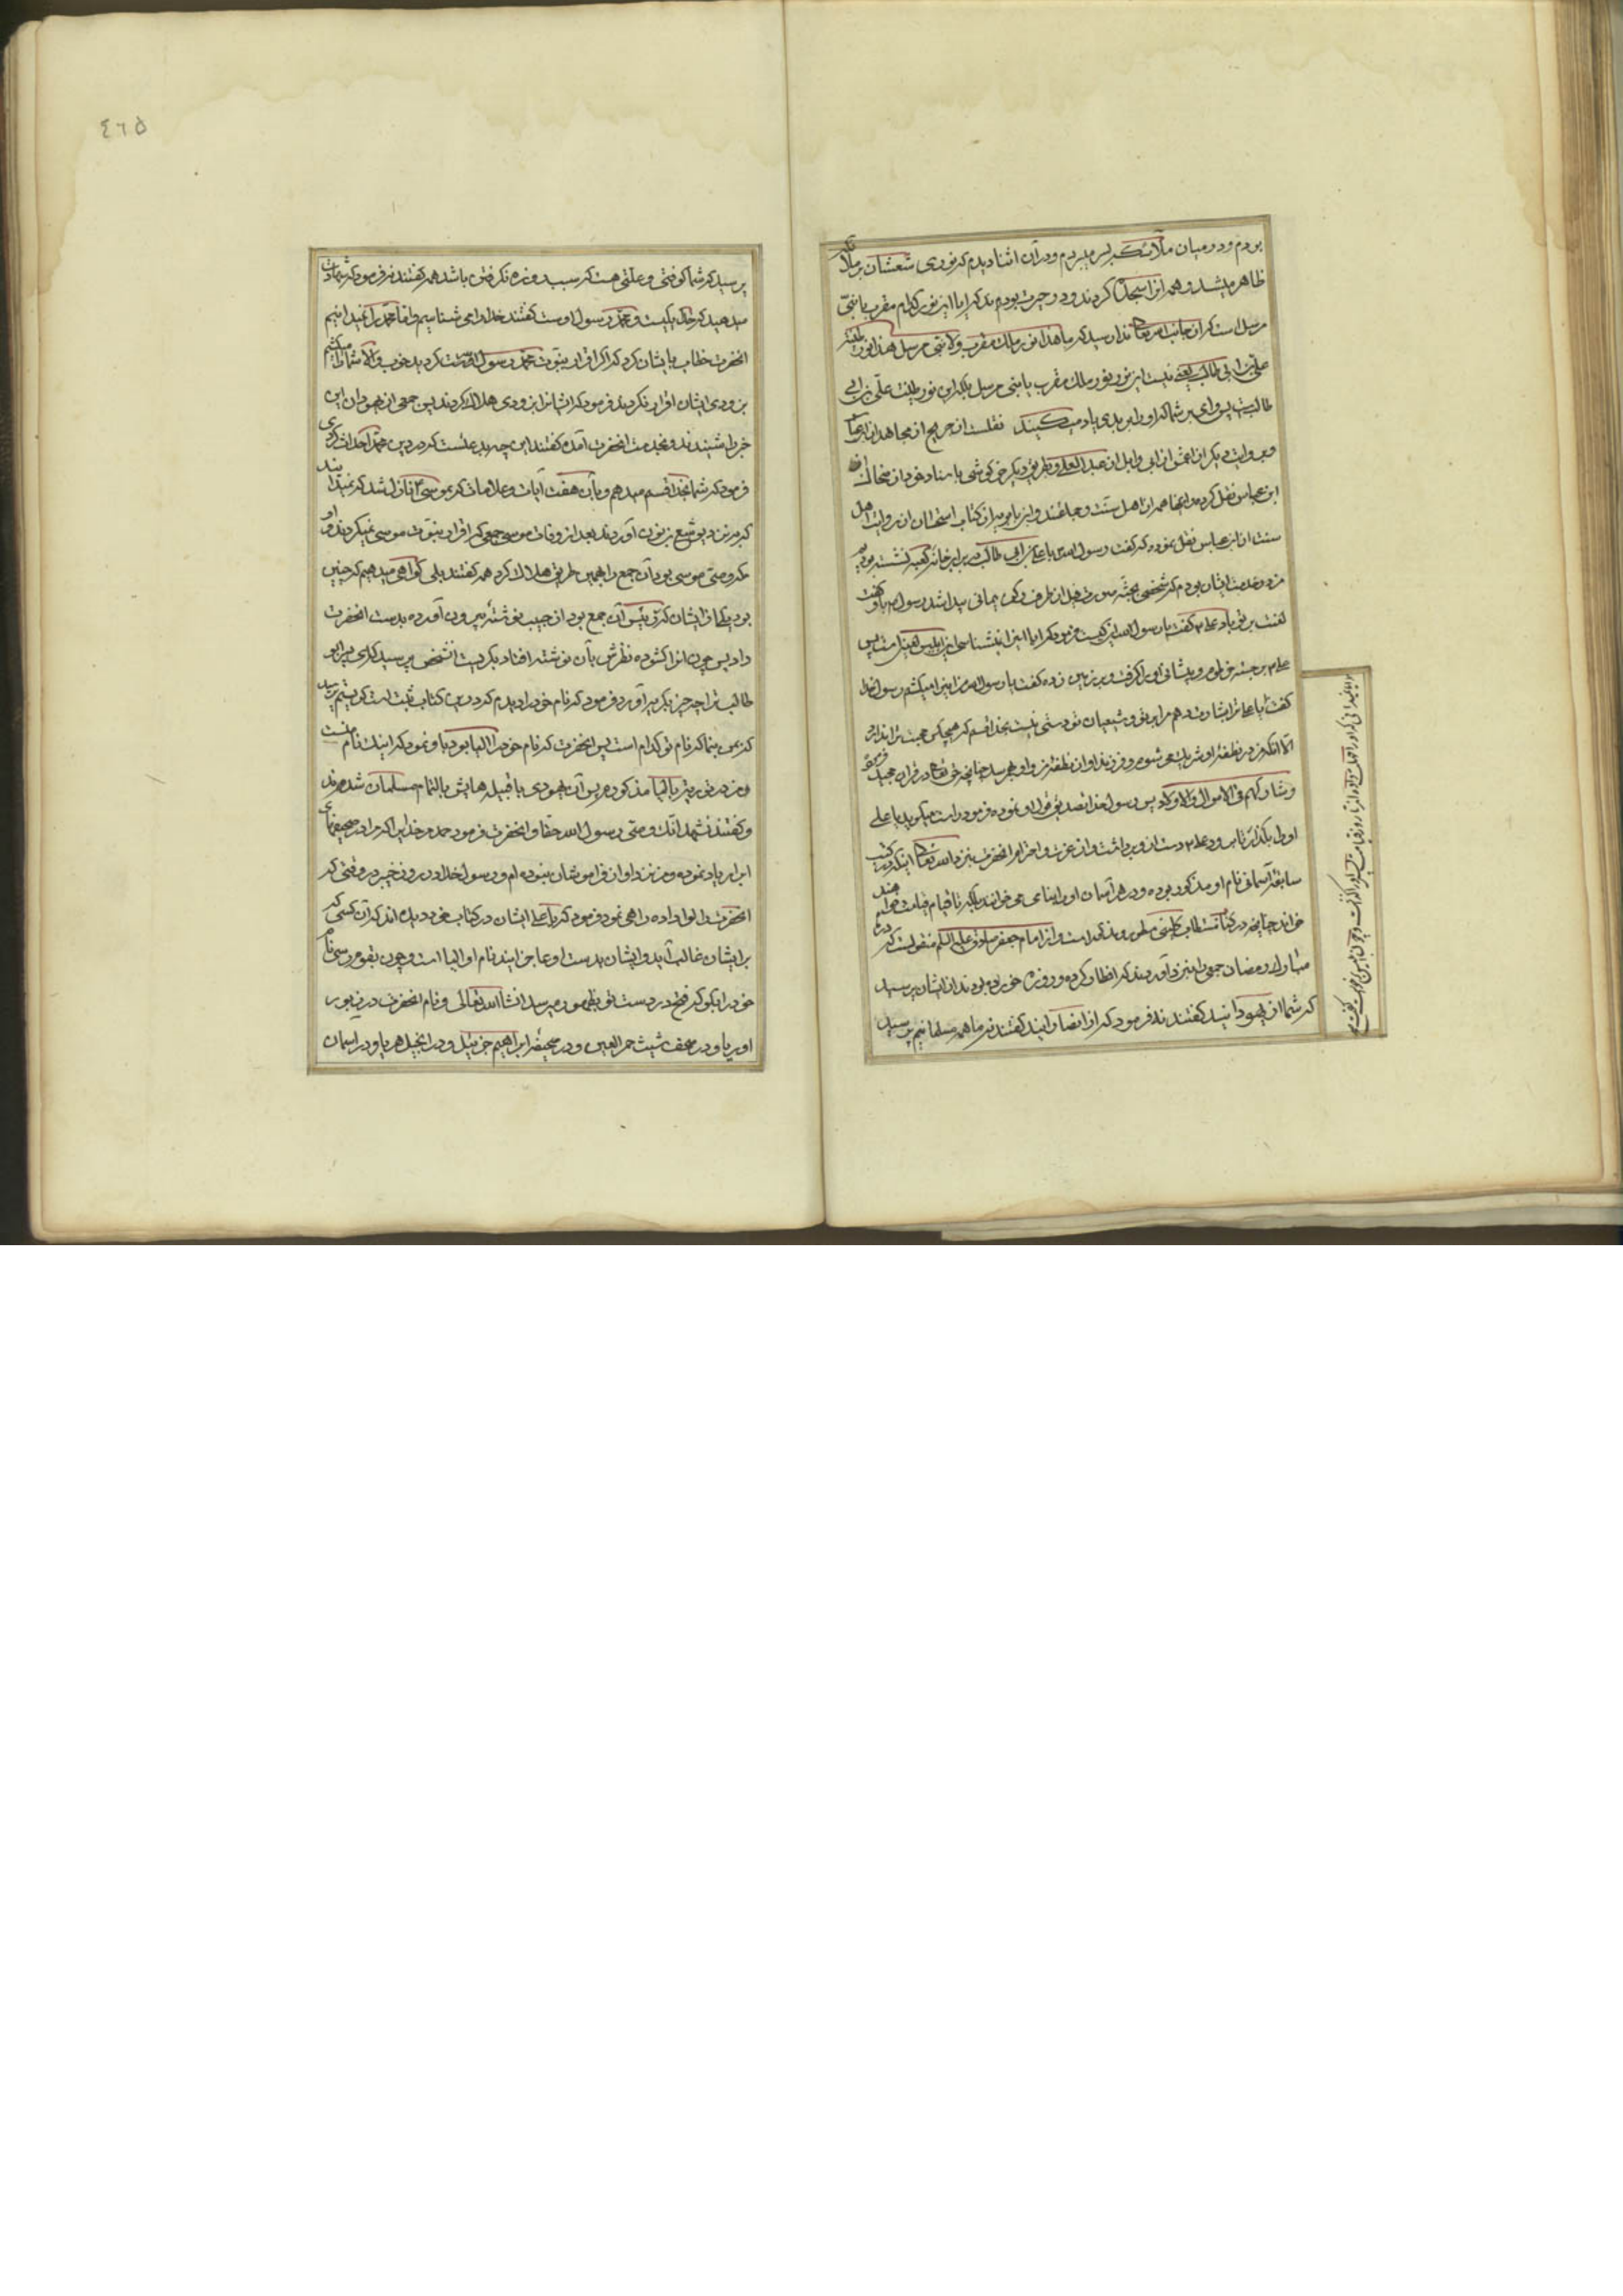 بودم و در میان ملائکه بسر میبردم و در آن اثنا دیدم که نوری شعشان بر ملائکه
ظاهر میشد و همه او را سجده کردند و در حیرت بودم که ایا این نور کدام مقرب یا نبی
مرسل است که از جانب الله تعالی ندا رسید که ما هذا نور ملک مقرب ولا نبی مرسل هذا نور طینة
علی بن ابی طالب یعنی نیست این نور نور ملک مقرب یا نبی مرسل بلکه این نور طینت علی بن ابی
طالبست پس وای بر شما که او را ببدی یاد میکنید نقلست از جریح از مجاهد از ابن عباس
و بروایت دیگر از اعمش از ابی وایل از عبد الله و بطریق دیگر خرکوشی باسناد خود از ضحاک از
ابن عباس نقل کرده و اینها همه از اهل سنت و جماعتند و ابن بابویه در کتاب امتحان از روایت اهل
سنت از ابن عباس نقل نموده که گفت رسول الله با علی بن ابی طالب در برابر خانه کعبه نشسته بودیم
من در خدمت ایشان بودم که شخصی بجثه بصورت فیل از طرف رکن یمانی پیدا شد رسول باو گفت
لعنت بر تو باد علی گفت یا رسول الله این کیست فرمود که ایا این را نمیشناسی این ابلیس لعینست پس
علی برجسته خرطوم و پیشانی او را گرفت و بر زمین زده گفت یا رسول الله من این را میکشم رسول خدا
گفت یا علی ترا بشارت دهم مر این تو و شیعیان تو دستی نیست بخدا قسم که هیچکس محبت ترا ندارد
الا انکه من در نطفه او شریک می شوم و فرزند او از نطفه من و او بهم رسد چنانچه حق تعالی در قران مجید فرموده
و شارکهم فی الاموال والاولاد پس رسول خدا تصدیق قول او نموده فرمود راست میگوید یا علی
او را بگذار تا برود علی دست از وی برداشت و از عزت و احترام انحضرت نزد الله تعالی اینکه در کتب
سابقه آسمانی نام او مذکور بوده و در هر آسمان او را بنامی می خوانند بلکه تا قیام قیامت خواهند
خواند چنانچه در کتاب مستطاب کلینی مسطور و مذکور است و از امام جعفر صادق علیه السلام منقولست که در ماه
مبارک رمضان جمعی را نزد او آوردند که افطار کرده و روزه خورده بودند از ایشان پرسید
که شما از یهودانید گفتند نه فرمود که از نصارایید گفتند نه ما همه مسلمانیم پرسید
٤٦٥
پرسید که شما کوفتی و علتی هست که سبب روزه نگرفتن باشد همه گفتند نه فرمود که شهادت
میدهید که خدا یکیست و محمد رسول اوست گفتند خدا را می شناسیم و اما محمد را نمیدانیم
انحضرت خطاب بایشان کرد که اگر اقرار بنبوت محمد رسول الله کردید خوب والا شما را میکشم
بزودی ایشان اقرار نکردند فرمود که ایشانرا بزودی هلاک کردند پس جمعی از یهودان این
خبر را شنیدند و بخدمت انحضرت آمده گفتند این چه بدعتست که در دین محمد احداث کردی
فرمود که شما بخدا قسم میدهم و بآن هفت آیات و علامات که بموسی نازل شد که نمیدانید
که نزد یوشع بن نون آوردند بعد از وفات موسی جمعی که اقرار بنبوت موسی نمیکردند و او
که وصی موسی بود آن جمع را بهمین طریق هلاک کرد همه گفتند بلی گواهی میدهیم که چنین
بود یکی از ایشان که رئیس آن جمع بود از جیب نوشته بیرون آورده بدست انحضرت
داد پس چون انرا گشوده نظرش بآن نوشته افتاد بگریست انشخص پرسید که ای پسر ابو
طالب ترا چه چیز بگریه آورد فرمود که نام خود را دیدم که در این کتاب ثبت است گریستم پرسید
که بمن بنما که نام تو کدام است پس انحضرت که نام خود را الیا بود باو نمود که اینک نام منست
و من در توریة بالیا مذکورم پس آن یهودی با قبیله هایش بالتمام مسلمان شدند
و گفتند نشهد انک وصی رسول الله حقا و انحضرت فرمود حمد مر خدایرا که مرا در صحیفهای
ابرار یاد نموده و من نزد او از فراموشان نبوده ام و رسول خدا در روز خیبر در وقتی که
انحضرت را لوا داده راهی نمود فرمود که یا علی ایشان در کتاب خود دیده اند که آن کسی که
بر ایشان غالب آید و ایشان بدست او عاجز آیند نام او الیا است و چون بقوم رسی نام
خود را بگو که فتح در دست تو بظهور میرسد انشا الله تعالی و نام انحضرت در زبور
اوریا و در صحف شیث حمر العین و در صحیفه ابراهیم حزبئیل و در انجیل بریا و در اسمان